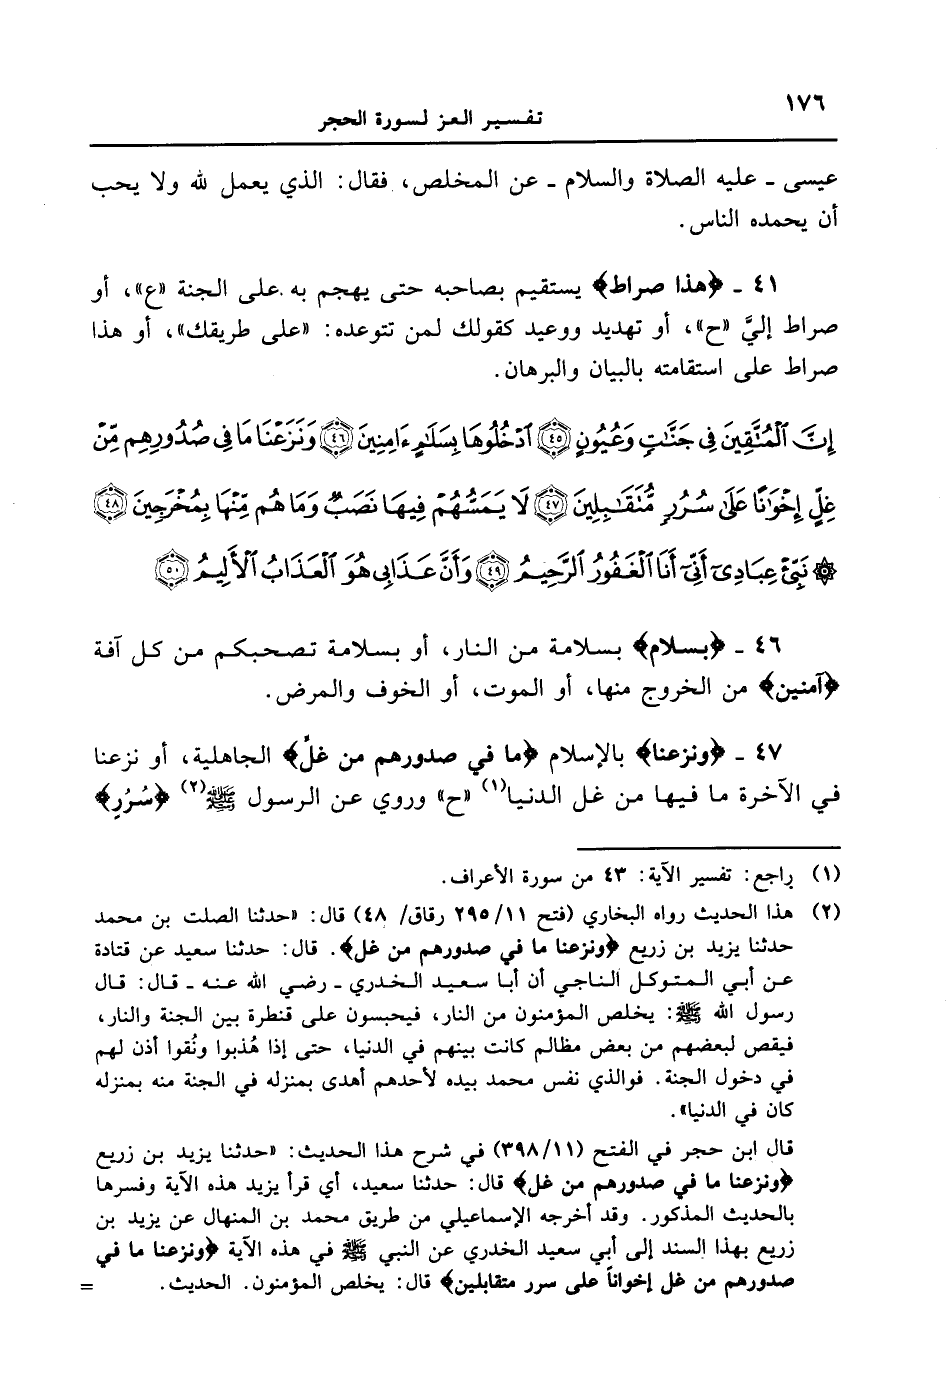 ١٧٦
تفسير العز لسورة الحجر
عيسى - عليه الصلاة والسلام - عن المخلص، فقال: الذي يعمل لله ولا يحب
أن يحمده الناس.
٤١ - ﴿هذا صراط﴾ يستقيم بصاحبه حتى يهجم به على الجنة «ع»، أو
صراط إليَّ «ح»، أو تهديد ووعيد كقولك لمن تتوعده: «على طريقك»، أو هذا
صراط على استقامته بالبيان والبرهان.
إِنَّ ٱلْمُتَّقِينَ فِى جَنَّٰتٍ وَعُيُونٍ ﴿٤٥﴾ ٱدْخُلُوهَا بِسَلَٰمٍ ءَامِنِينَ ﴿٤٦﴾ وَنَزَعْنَا مَا فِى صُدُورِهِم مِّنْ
غِلٍّ إِخْوَٰنًا عَلَىٰ سُرُرٍ مُّتَقَٰبِلِينَ ﴿٤٧﴾ لَا يَمَسُّهُمْ فِيهَا نَصَبٌ وَمَا هُم مِّنْهَا بِمُخْرَجِينَ ﴿٤٨﴾
۞ نَبِّئْ عِبَادِىٓ أَنِّىٓ أَنَا ٱلْغَفُورُ ٱلرَّحِيمُ ﴿٤٩﴾ وَأَنَّ عَذَابِى هُوَ ٱلْعَذَابُ ٱلْأَلِيمُ ﴿٥٠﴾
٤٦ - ﴿بسلام﴾ بسلامة من النار، أو بسلامة تصحبكم من كل آفة
﴿آمنين﴾ من الخروج منها، أو الموت، أو الخوف والمرض.
٤٧ - ﴿ونزعنا﴾ بالإسلام ﴿ما في صدورهم من غلٍّ﴾ الجاهلية، أو نزعنا
في الآخرة ما فيها من غل الدنيا(١) «ح» وروي عن الرسول ﷺ(٢) ﴿سُرُرٍ﴾
(١) راجع: تفسير الآية: ٤٣ من سورة الأعراف.
(٢) هذا الحديث رواه البخاري (فتح ٢٩٥/١١ رقاق/ ٤٨) قال: «حدثنا الصلت بن محمد
حدثنا يزيد بن زريع ﴿ونزعنا ما في صدورهم من غل﴾. قال: حدثنا سعيد عن قتادة
عن أبي المتوكل الناجي أن أبا سعيد الخدري - رضي الله عنه - قال: قال
رسول الله ﷺ: يخلص المؤمنون من النار، فيحبسون على قنطرة بين الجنة والنار،
فيقص لبعضهم من بعض مظالم كانت بينهم في الدنيا، حتى إذا هُذبوا ونُقوا أذن لهم
في دخول الجنة. فوالذي نفس محمد بيده لأحدهم أهدى بمنزله في الجنة منه بمنزله
كان في الدنيا».
قال ابن حجر في الفتح (٣٩٨/١١) في شرح هذا الحديث: «حدثنا يزيد بن زريع
﴿ونزعنا ما في صدورهم من غل﴾ قال: حدثنا سعيد، أي قرأ يزيد هذه الآية وفسرها
بالحديث المذكور. وقد أخرجه الإسماعيلي من طريق محمد بن المنهال عن يزيد بن
زريع بهذا السند إلى أبي سعيد الخدري عن النبي ﷺ في هذه الآية ﴿ونزعنا ما في
صدورهم من غل إخواناً على سرر متقابلين﴾ قال: يخلص المؤمنون. الحديث. =